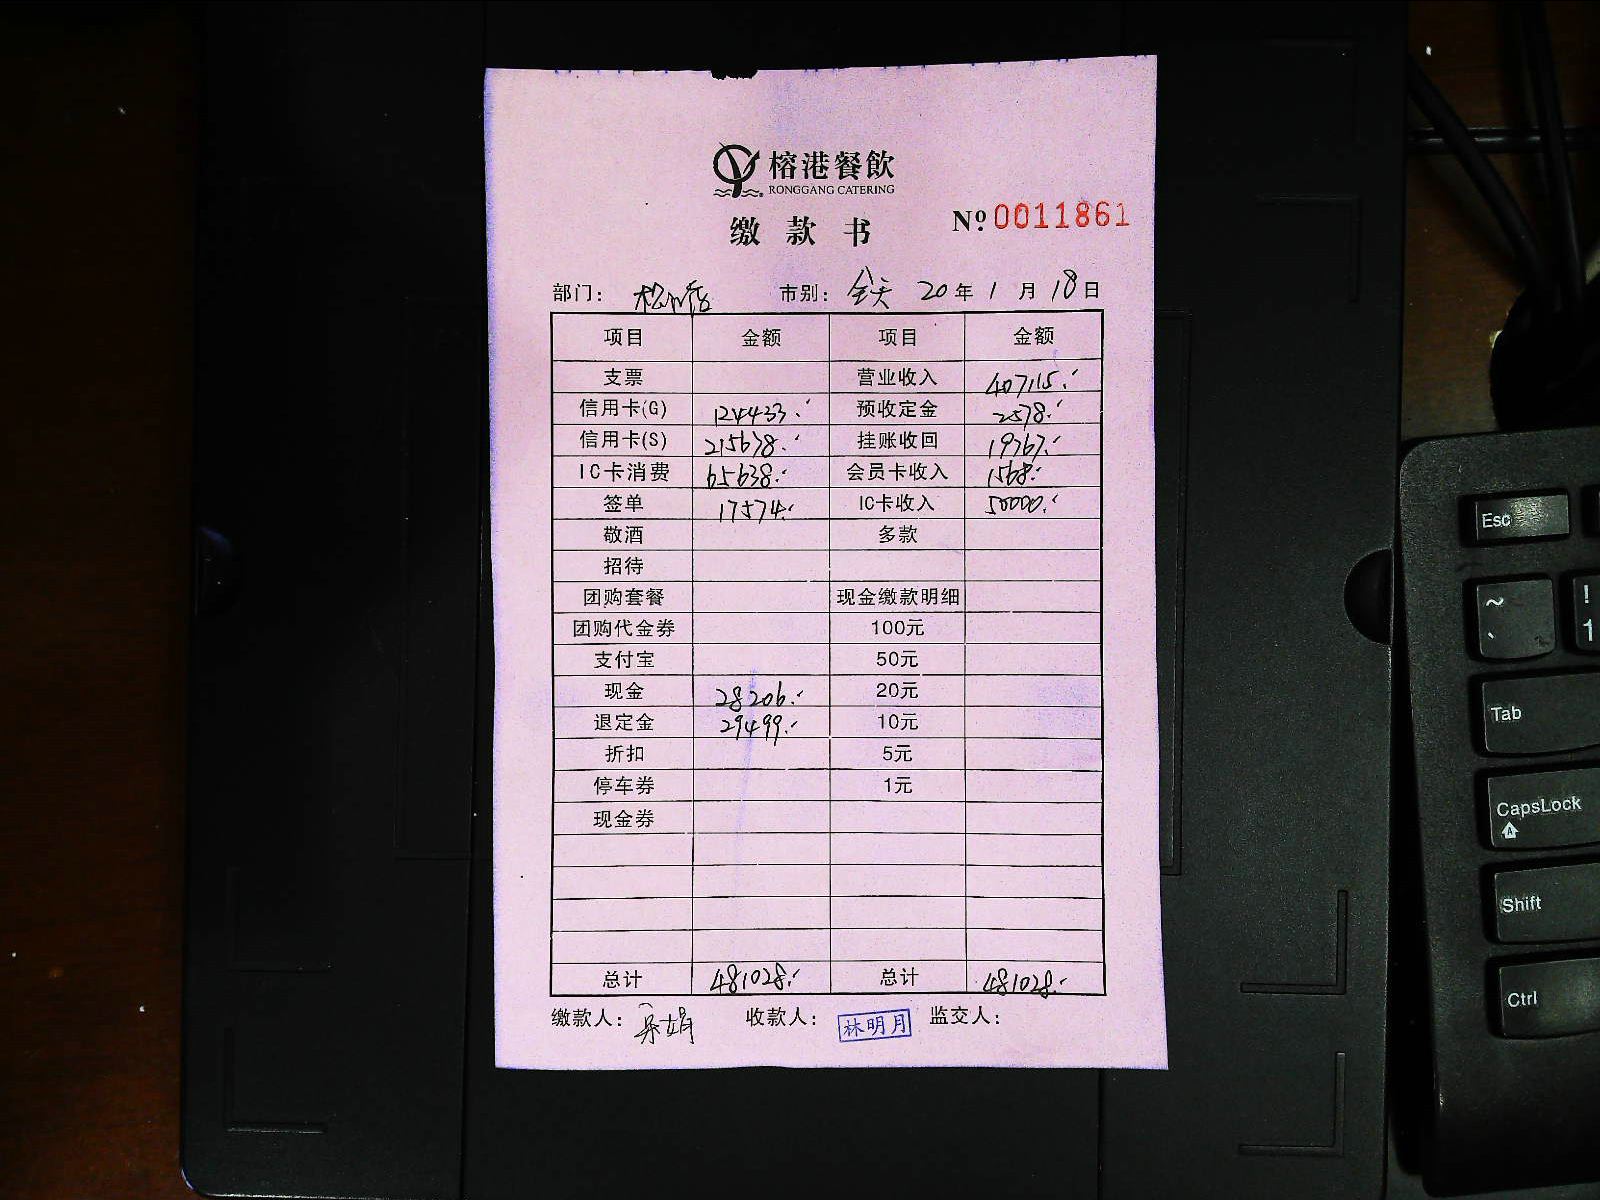 榕港餐飲
RONGGANG CATERING
缴款书 Nº 0011861
部门： 市别：全天 20年1月18日
项目 金额 项目 金额
支票 营业收入 407115.
信用卡(G) 124433. 预收定金 2578.
信用卡(S) 215678. 挂账收回 19767.
IC卡消费 65638. 会员卡收入 1568.
签单 17574. IC卡收入 50000.
敬酒 多款
招待
团购套餐 现金缴款明细
团购代金券 100元
支付宝 50元
现金 28206. 20元
退定金 29499. 10元
折扣 5元
停车券 1元
现金券
总计 481028. 总计 481028.
缴款人：吴娟 收款人：林明月 监交人：
Esc
~ !
` 1
Tab
CapsLock
A
Shift
Ctrl